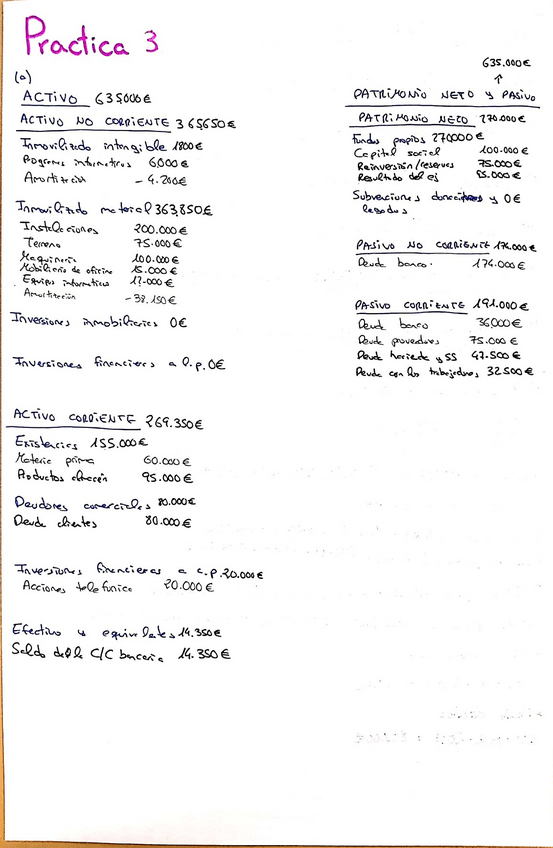 Practica 3
(a)
ACTIVO 635000€
ACTIVO NO CORRIENTE 365650€
Inmovilizado intangible 1800€
Programas informaticos 6,000€
Amortización - 4.200€
Inmovilizado material 363,850€
Instalaciones 200.000€
Terreno 75.000€
Maquinaria 100.000€
Mobiliario de oficina 15.000€
Equipos informaticos 12.000€
Amortización -38.150€
Inversiones inmobiliarias 0€
Inversiones financieras a l.p. 0€
ACTIVO CORRIENTE 269.350€
Existencias 155.000€
Materia prima 60.000€
Productos almacén 95.000€
Deudores comerciales 80.000€
Deuda clientes 80.000€
Inversiones financieras a c.p. 20.000€
Acciones telefonica 20.000€
Efectivo y equivalentes 14.350€
Saldo de la C/C bancaria 14.350€
635.000€
↑
PATRIMONIO NETO y PASIVO
PATRIMONIO NETO 270.000€
Fondos propios 270000€
Capital social 100.000€
Reinversión/reservas 75.000€
Resultado del ej 95.000€
Subvenciones donaciones y 0€
legados
PASIVO NO CORRIENTE 174.000€
Deuda banco. 174.000€
PASIVO CORRIENTE 191.000€
Deuda banco 36,000€
Deuda provedores 75.000€
Deuda hacienda y SS 47.500€
Deuda con los trabajadores 32.500€